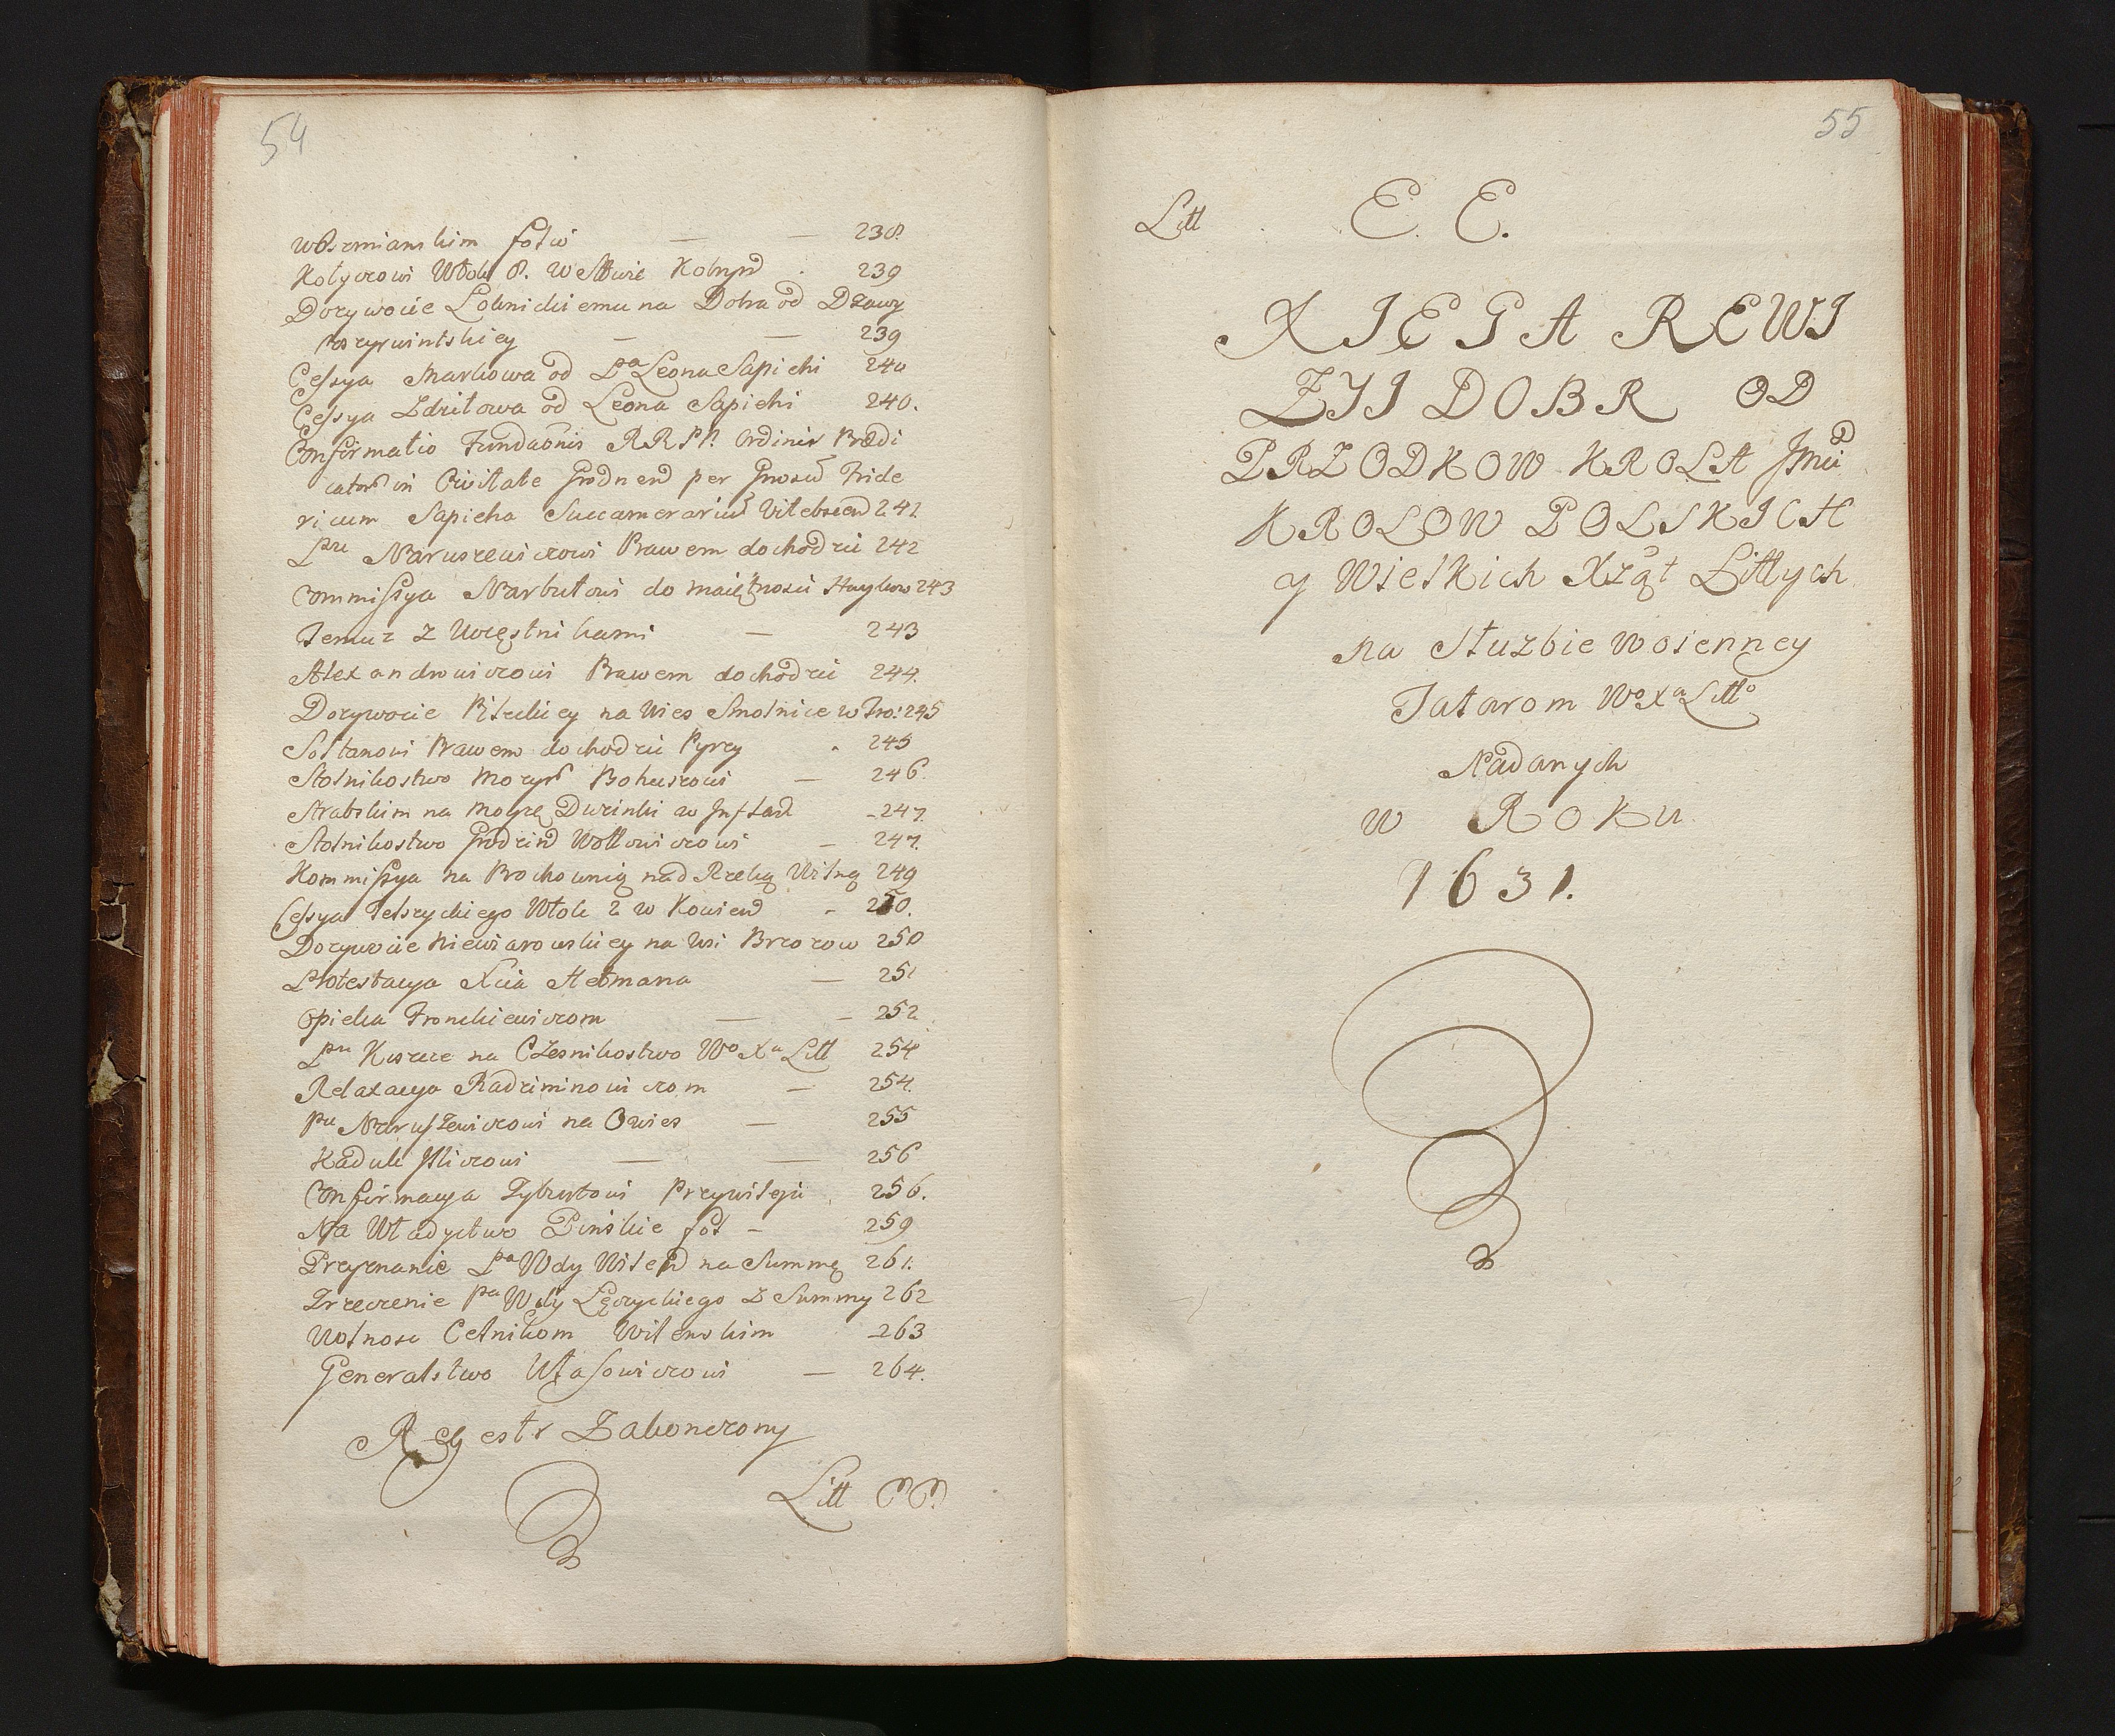 54
fol: 238.
239
Dozywocie Lobnickiemu na Dobra od Dzawy
239
Cessya Markowa od Pa Leona Sapiehi 240
Cessya Zdzitowa od Leona Sapiehi 240.
Confirmatio Fundaōnis RR PP. Ordinis Prædi
cator in Civitate Grodnen per Gnosū Fride
ricum Sapieha Succamerariū Vitebscen 241
Pnu Naruszewiczowi Prawem dochodzic 242
Commissya Narbutowi do maiętnosci 243
Temuz z Uczęstnikami — 243
Alexandrowiczowi Prawem dochodzic 244.
Dozywocie na Wies Smolnice w Tro: 245
Sołtanowi Prawem dochodzic 245
Stolnikostwo Mozyr Bohuszowi — 246.
na w Inflan - 247.
Stolnikostwo Grodzin Wołłowiczowi — 247.
Kommissya na Prochownią nad Rzeką Wilną 249
Cessya Telszyckiego Włok 2 w Kowien - 250.
Dozywocie Niewiarowskiey na Wsi Brzozow 250
Protestacya Xcia Hetmana — 251
Opieka Fronckiewiczom — - 252
Pnu Kiszce na Czesnikostwo Wo Xa Litt 254
Relaxacya Radziminowiczom — 254.
Pu Naruszewiczowi na Owies — 255
Kaduk Iliczowi — — 256
Confirmacya Tyburtowi Przywileju 256.
Na Władyctwo Pinskie fol — 259
Przyznanie Pa Wdy Wilen na Summę 261.
Zrzeczenie Pa Wdy Łęczyckiego z Summy 262
Wolnosc Celnikom Wilenskim - 263
Generalstwo Własowiczowi — 264.
Regestr Zakonczony
Litt
55
Litt E. E.
XIEGA REWI
ZYI DOBR OD
PRZODKOW KROLA Jmci
KROLOW POLSKICH
y Wielkich Xząt Littych
na Służbie Woienney
Tatarom Wo Xa Litto
Nadanych
w Roku
1631.